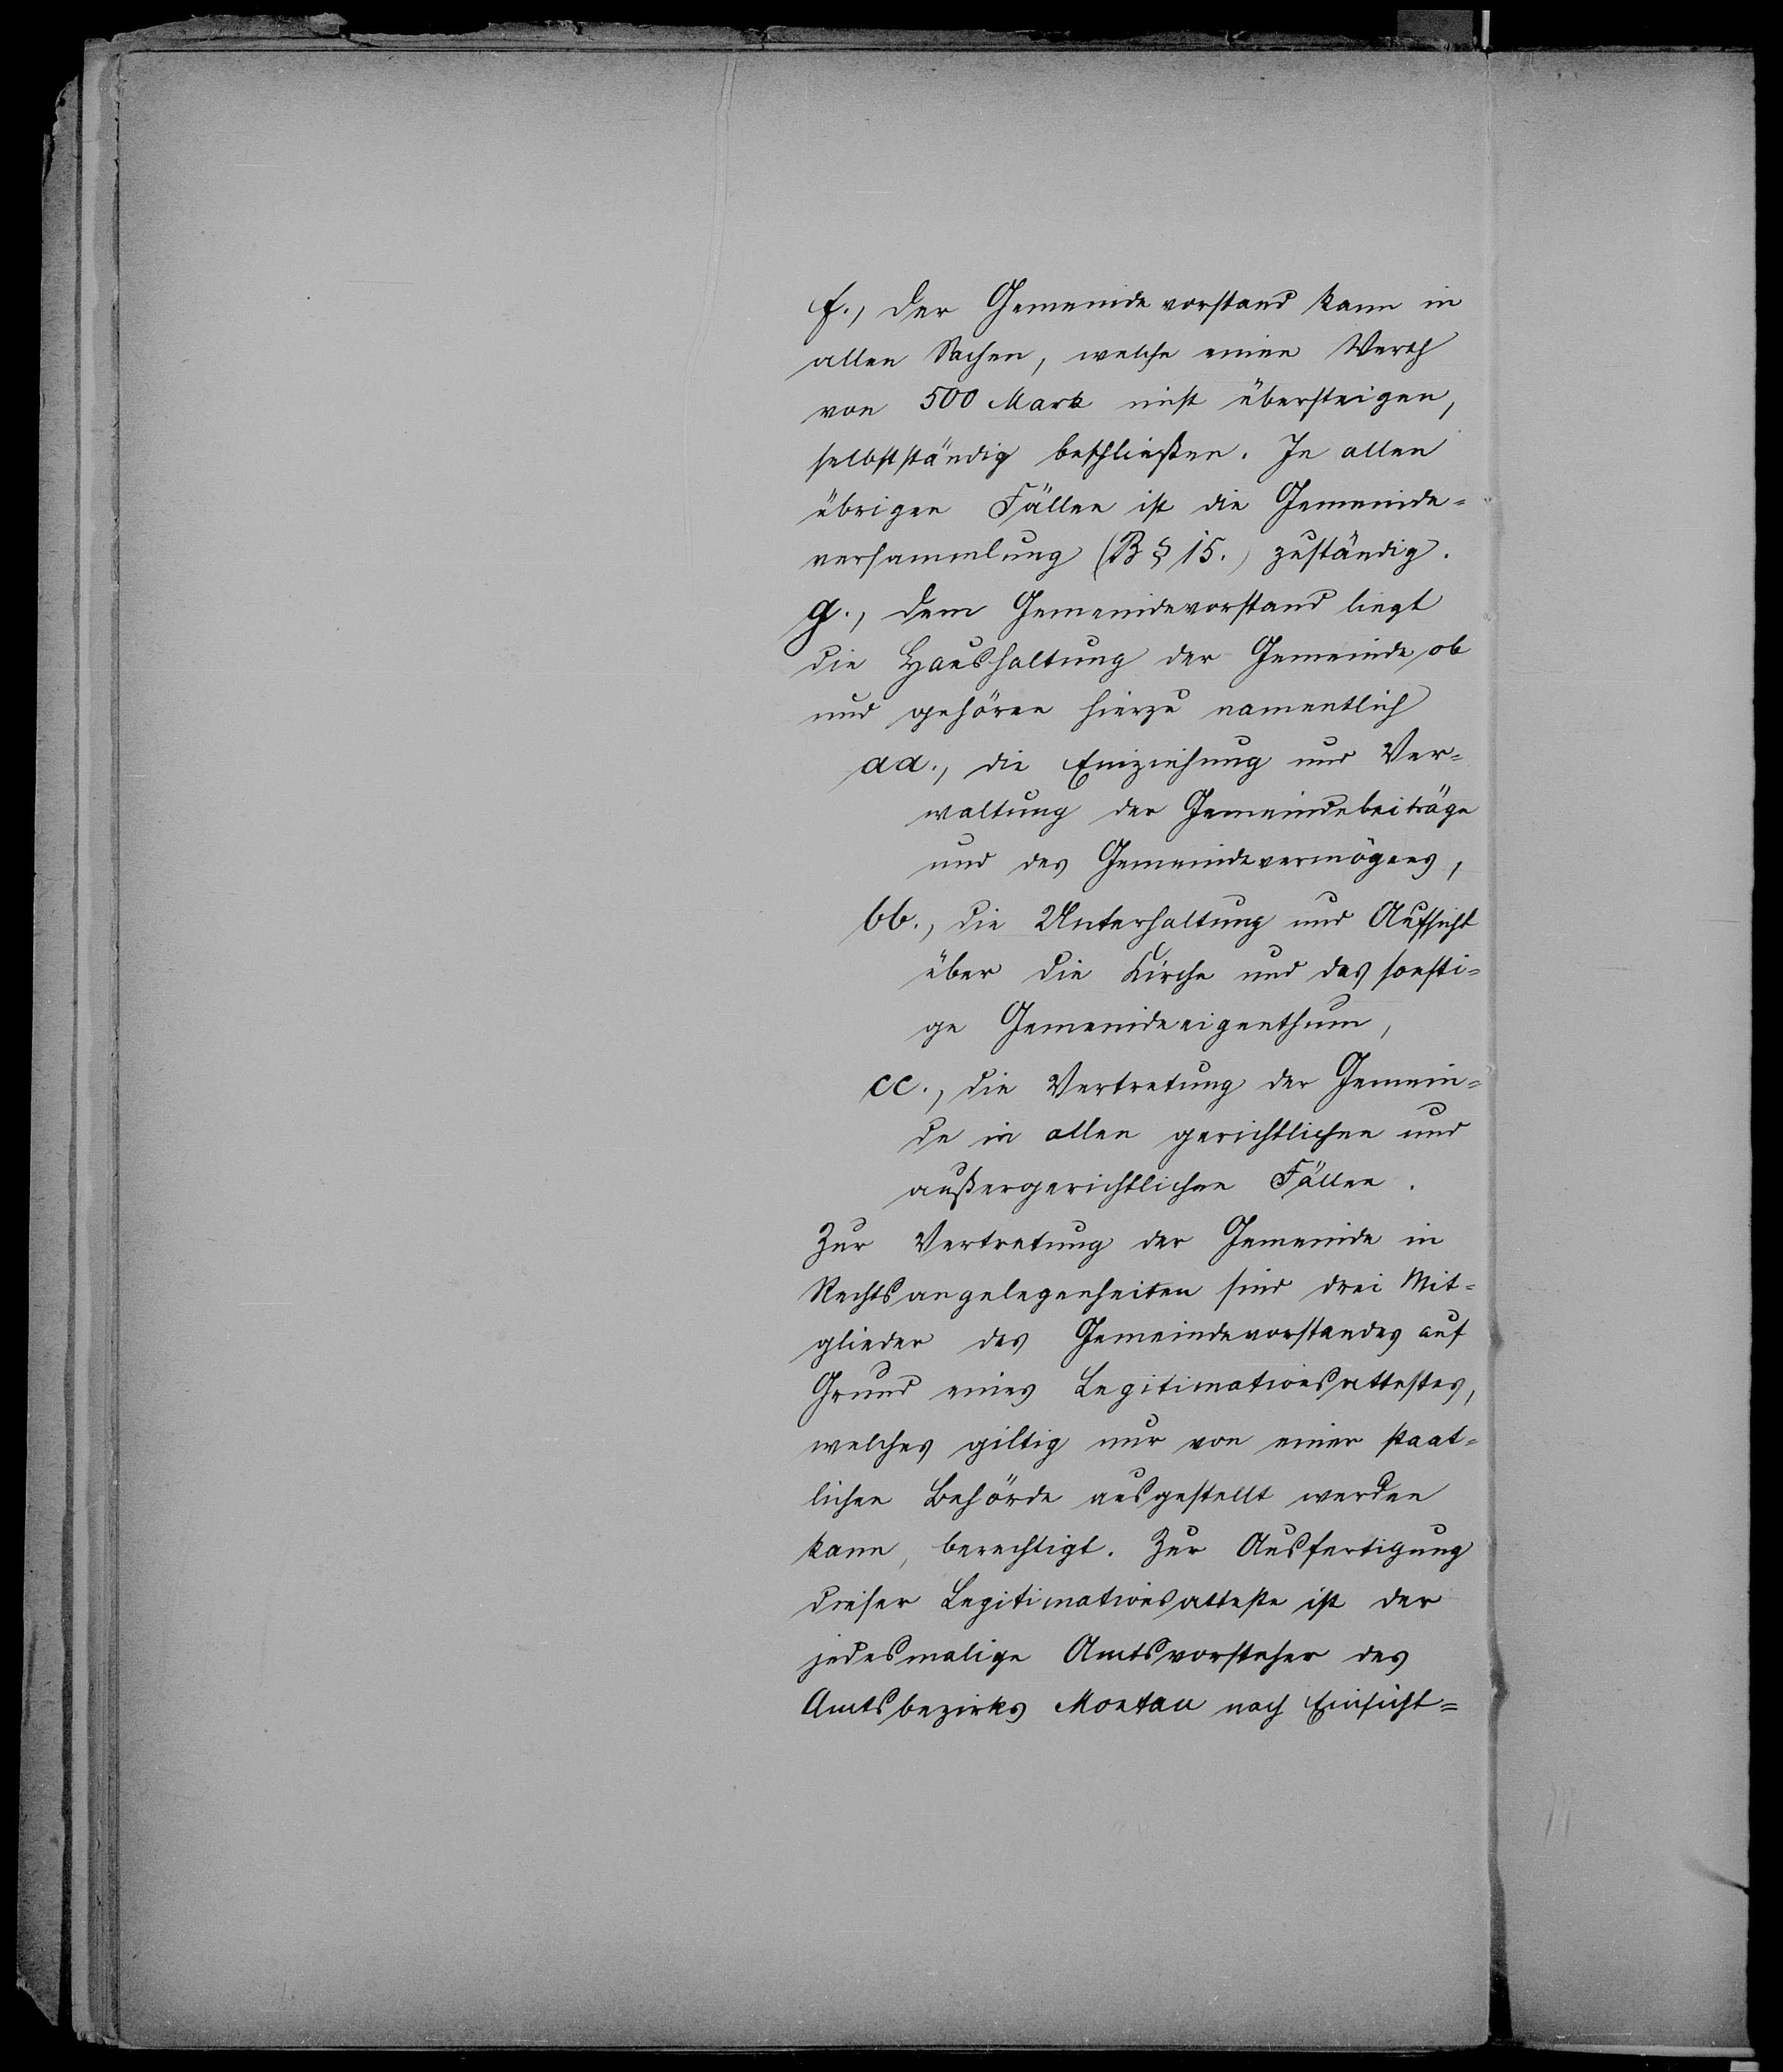 f., Der Gemeindevorstand kann in
allen Sachen, welche einen Werth
von 500 Mark nicht übersteigen,
selbstständig beschließen. In allen
übrigen Fällen ist die Gemeinde=
versammlung (B § 15.) zuständig.
g., Dem Gemeindevorstand liegt
die Haushaltung der Gemeinde ob
und gehören hierzu namentlich
aa., die Einziehung und Ver=
waltung der Gemeindebeiträge
und des Gemeindevermögens,
bb., die Unterhaltung und Aufsicht
über die Kirche und das sonsti=
ge Gemeindeeigenthum,
cc., die Vertretung der Gemein=
de in allen gerichtlichen und
außergerichtlichen Fällen.
Zur Vertretung der Gemeinde in
Rechtsangelegenheiten sind drei Mit=
glieder des Gemeindevorstandes auf
Grund eines Legitimationsattestes,
welches giltig nur von einer staat=
lichen Behörde ausgestellt werden
kann, berechtigt. Zur Ausfertigung
dieser Legitimationsatteste ist der
jedesmalige Amtsvorsteher des
Amtsbezirks Montau nach Einsicht=